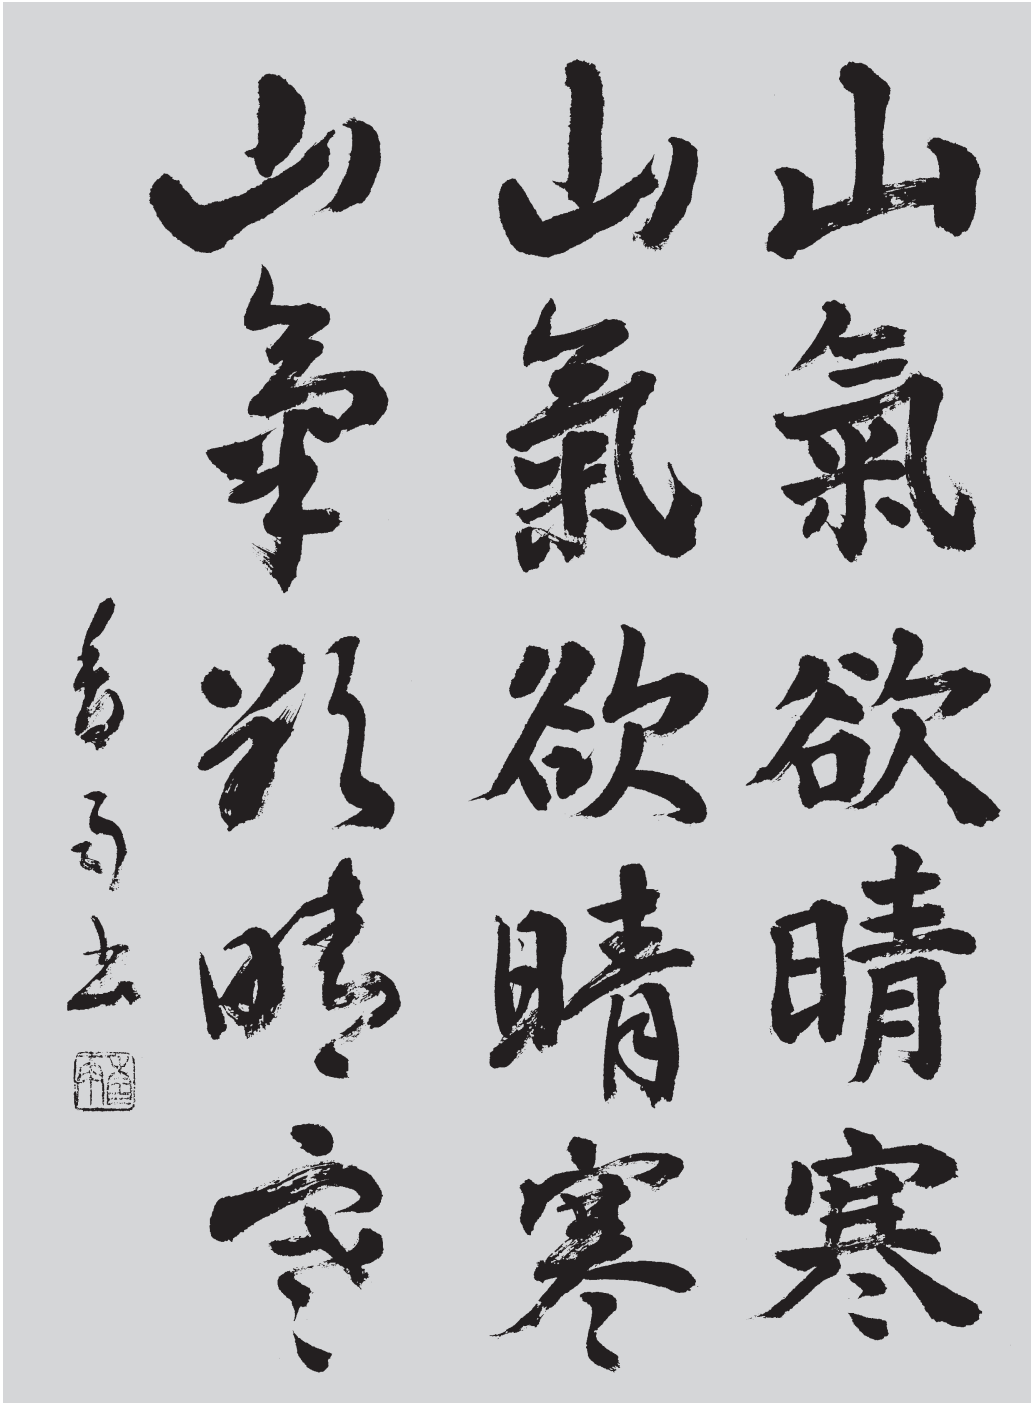 山氣欲晴寒
山氣欲晴寒
山氣欲晴寒
香雨書